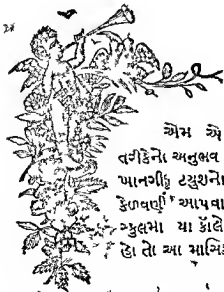 એમ એ
તરીકેનો અનુભવ
ખાનગી ટયુશનો
કેળવણી આપવા
સ્કુલમા યા કૉલે
હો તો આ માસિ